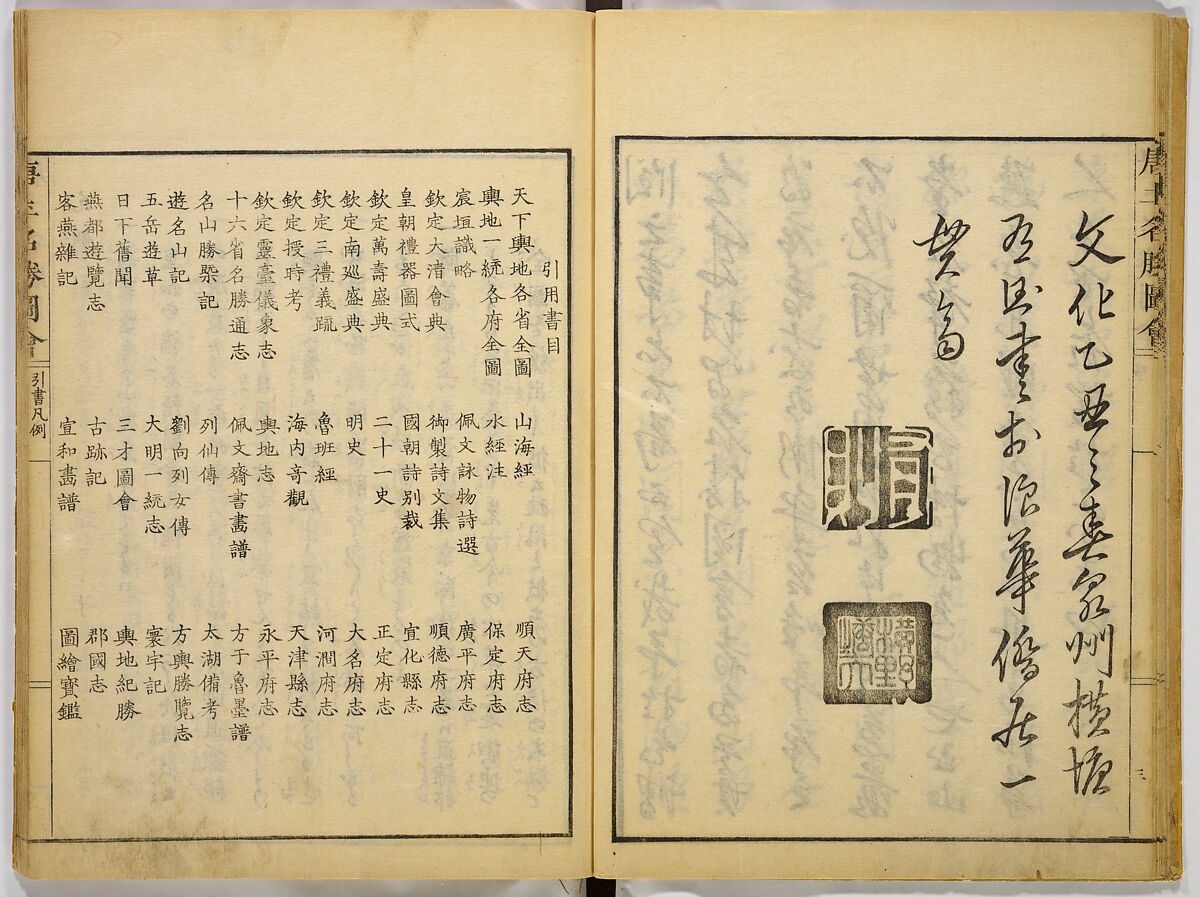 唐土名勝圖會
文化乙丑之春泉州横塘
書於浪華僑居一
引用書目
天下輿地各省全圖 山海經 順天府志
輿地一統各府全圖 水經注 保定府志
宸垣識略 佩文詠物詩選 廣平府志
欽定大清會典 御製詩文集 順德府志
皇朝禮器圖式 國朝詩別裁 宣化縣志
欽定萬壽盛典 二十一史 正定府志
欽定南廵盛典 明史 大名府志
欽定三禮義疏 魯班經 河澗府志
欽定授時考 海内奇觀 天津縣志
欽定靈臺儀象志 輿地志 永平府志
十六省名勝通志 佩文齋書畫譜 方于魯墨譜
名山勝槩記 列仙傳 太湖備考
遊名山記 劉向列女傳 方輿勝覽志
五岳遊草 大明一統志 寰宇記
日下舊聞 三才圖會 輿地紀勝
燕都遊覽志 古跡記 郡國志
客燕雜記 宣和畫譜 圖繪寶鑑
唐土名勝圖會 引書凡例